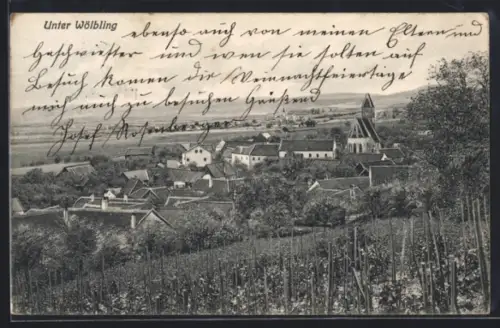 Unter Wölbling
ebenso auch von meinen Eltern und
Geschwister und wen sie solten auf
Besuch komen die Weinachtfeiertage
mich auch zu besuchen Grüßend
Josef